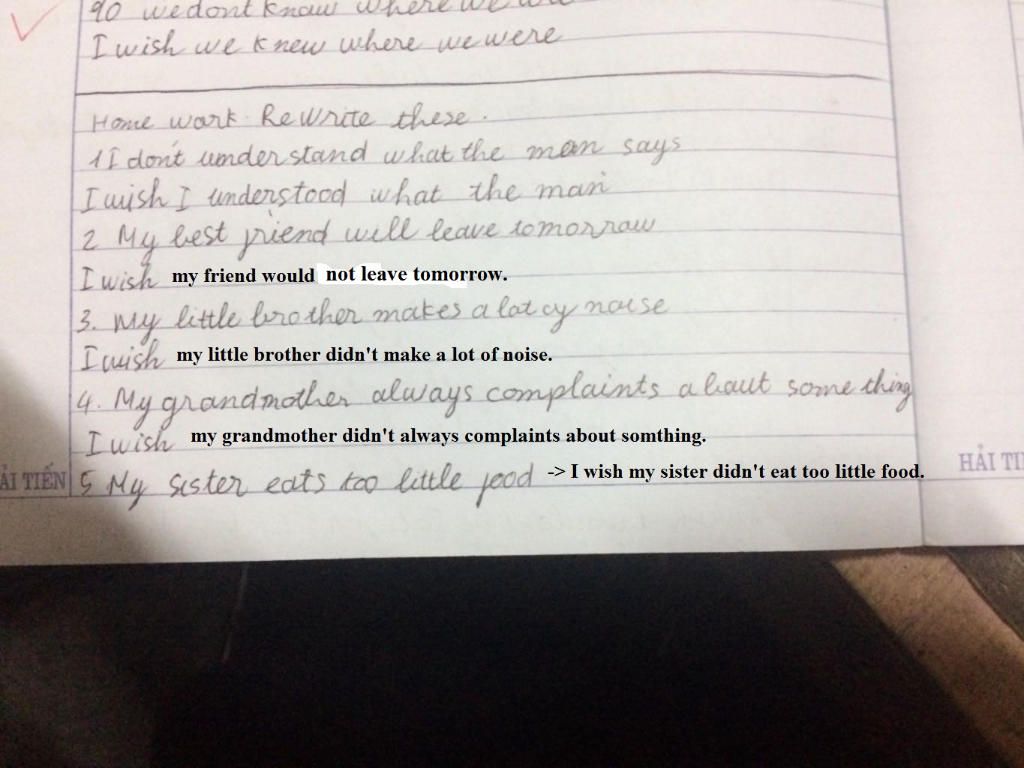 90 we dont know where we are
I wish we knew where we were
Home work. ReWrite these.
1 I don't understand what the man says
I wish I understood what the man
2 My best friend will leave tomorrow
I wish my friend would not leave tomorrow.
3. My little brother makes a lot of noise
I wish my little brother didn't make a lot of noise.
4. My grandmother always complaints about some thing
I wish my grandmother didn't always complaints about somthing.
ẢI TIẾN 5 My sister eats too little food -> I wish my sister didn't eat too little food. HẢI TI